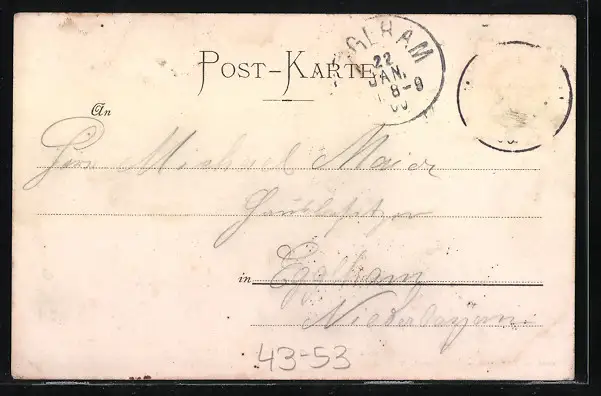 POST-KARTE
EGLHAM
22
JAN.
8-9
00
An
Herrn Michael Maier
Hausbesitzer
in Egglham
Niederbayern
43-53